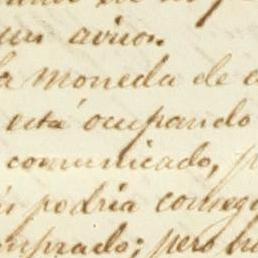 un aviso.
la moneda de
está ocupando
comunicado, p
podria conseg
omprado; pero